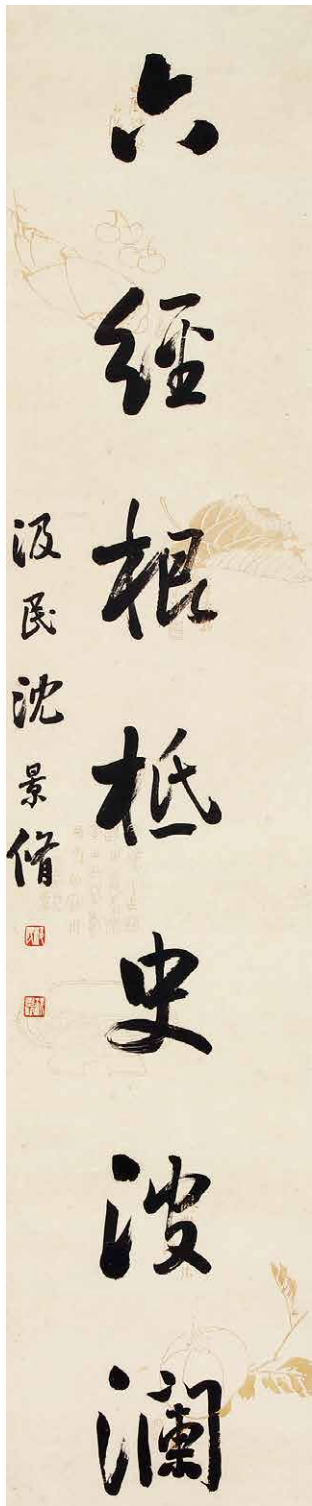 六經根柢史波瀾
汲民沈景脩